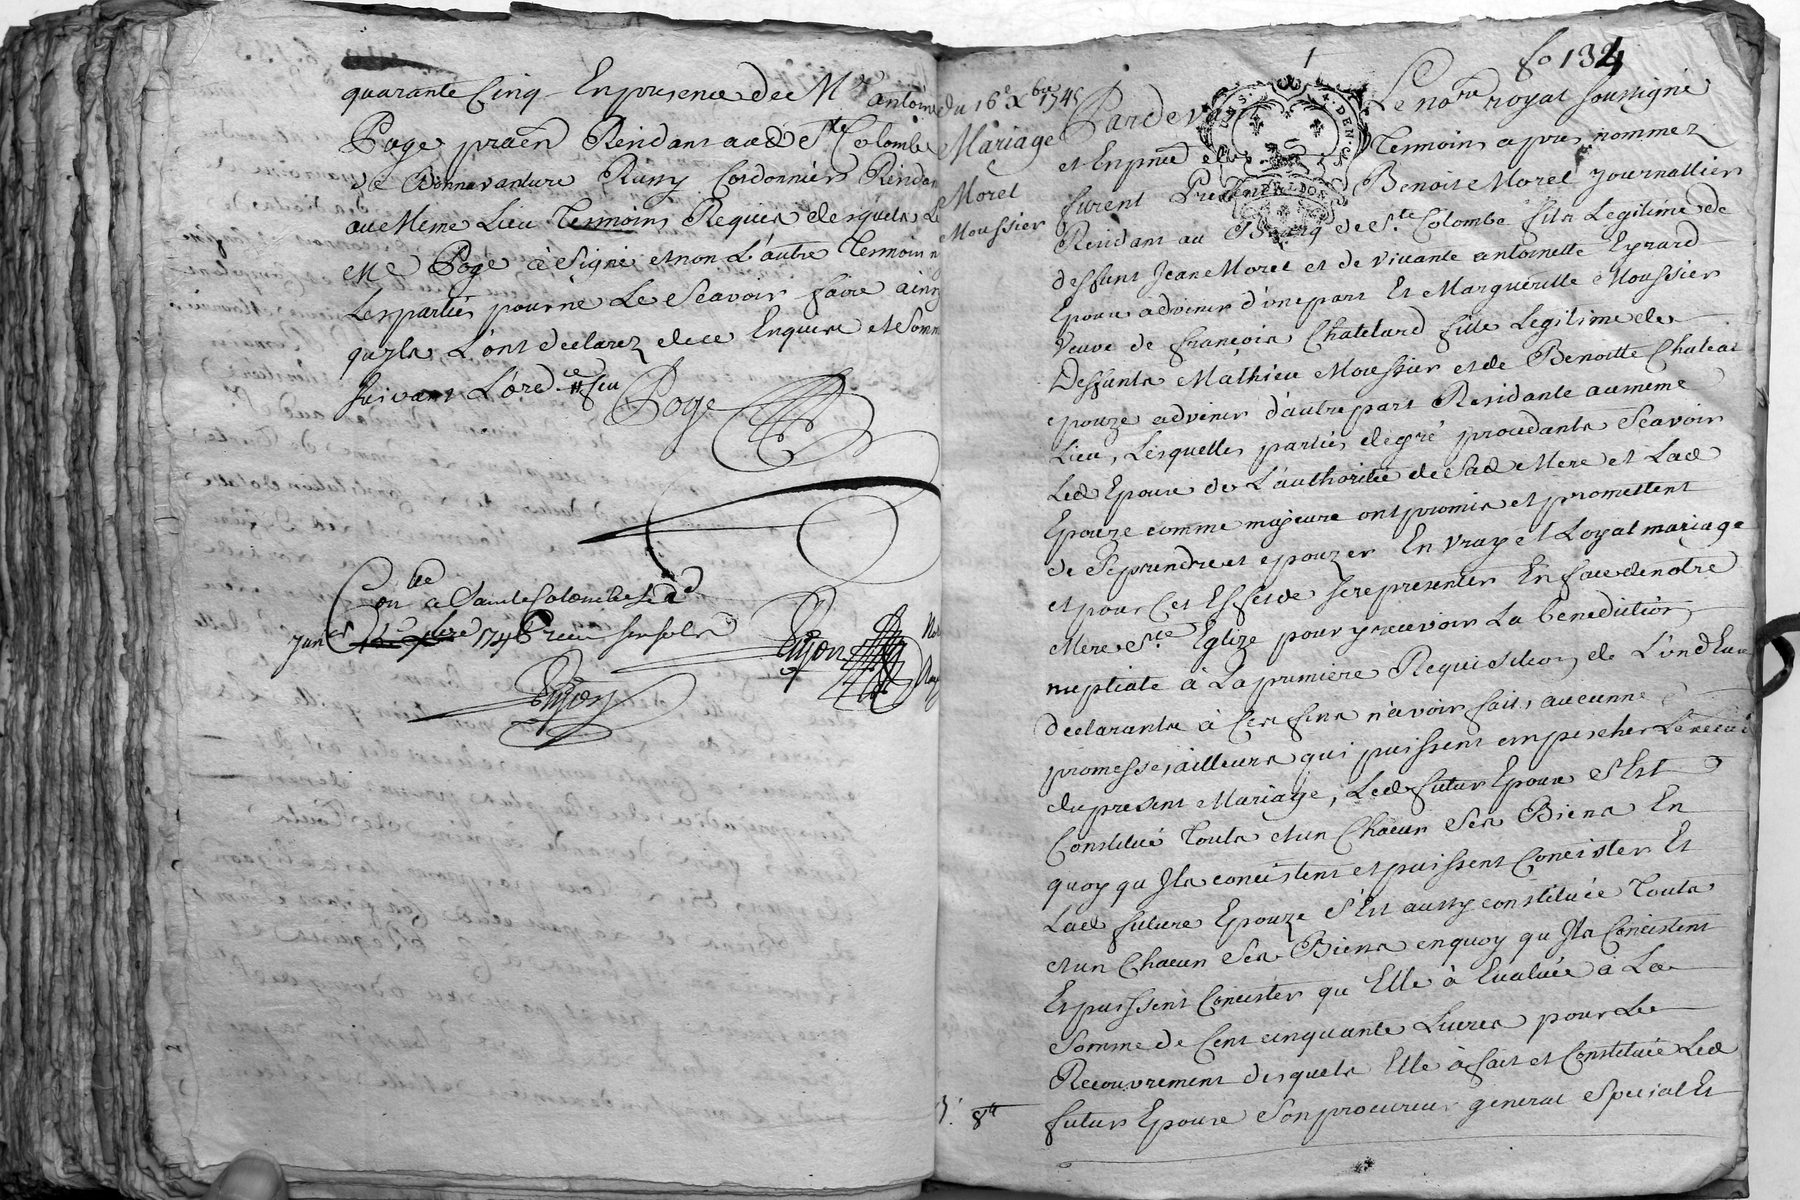 quarante Cinq En presence de Mr antoine
Poge praen Residant aud Ste Colombe
de Bonnavanture Russy Cordonnier Residan
au Meme Lieu Temoins Requis desquels Le
Me Poge à Signé et non L'autre Temoin n
Les parties pour ne Le Scavoir faire ainsy
qu'ils L'ont declarez de ce Enquis et Somm
suivant L'ord ce
Poge
Conlle a Sainte Colombe Le
janer 1746 receu six sols
Dujon
Dujon
fo 134
du 16e Xbre 1745
Mariage
Morel
Moussier
Pardevant Le nore royal soussigné
et En pnce des Temoins apres nommez
furent Presents Benoit Morel Journallier
Residant au Bourg de Ste Colombe fils Legitime de
deffunt Jean Morel et de vivante antoinette Epirard
Epoux advenir d'une part Et Marguerite Moussier
Veuve de françois Chatelard fille Legitime de
Deffunts Mathieu Moussier et de Benoitte Chateau
epouze advenir d'autre part Residante au meme
Lieu, Lesquelles parties de gré procedants Scavoir
Led Epoux de L'authorité de Sad Mere et Lad
Epouze comme majeure ont promis et promettent
de Se prendre et epouzer En vray et Loyal mariage
et pour Cet Effet de se representer En face de notre
Mere Ste Eglize pour y recevoir La benediction
nuptiale à La premiere Requisition de L'un d'Eux
declarants à Ces fins n'avoir fait aucunne
promesse ailleurs qui puissent empescher L'effect
du present Mariage, Led futur Epoux S'Est
Constitué Touts et un Chacun Ses Biens En
quoy qu'Ils concistent et puissent Concister Et
Lad future Epouze S'Est aussy constituée Touts
et un Chacun Ses Biens en quoy qu'Ils Concistent
Et puissent Concister qu'Elle à Evaluée à La
Somme de Cent cinquante Livres pour Le
Recouvrement desquels Elle à fait et Constituée Led
futur Epoux Son procureur general Special Et